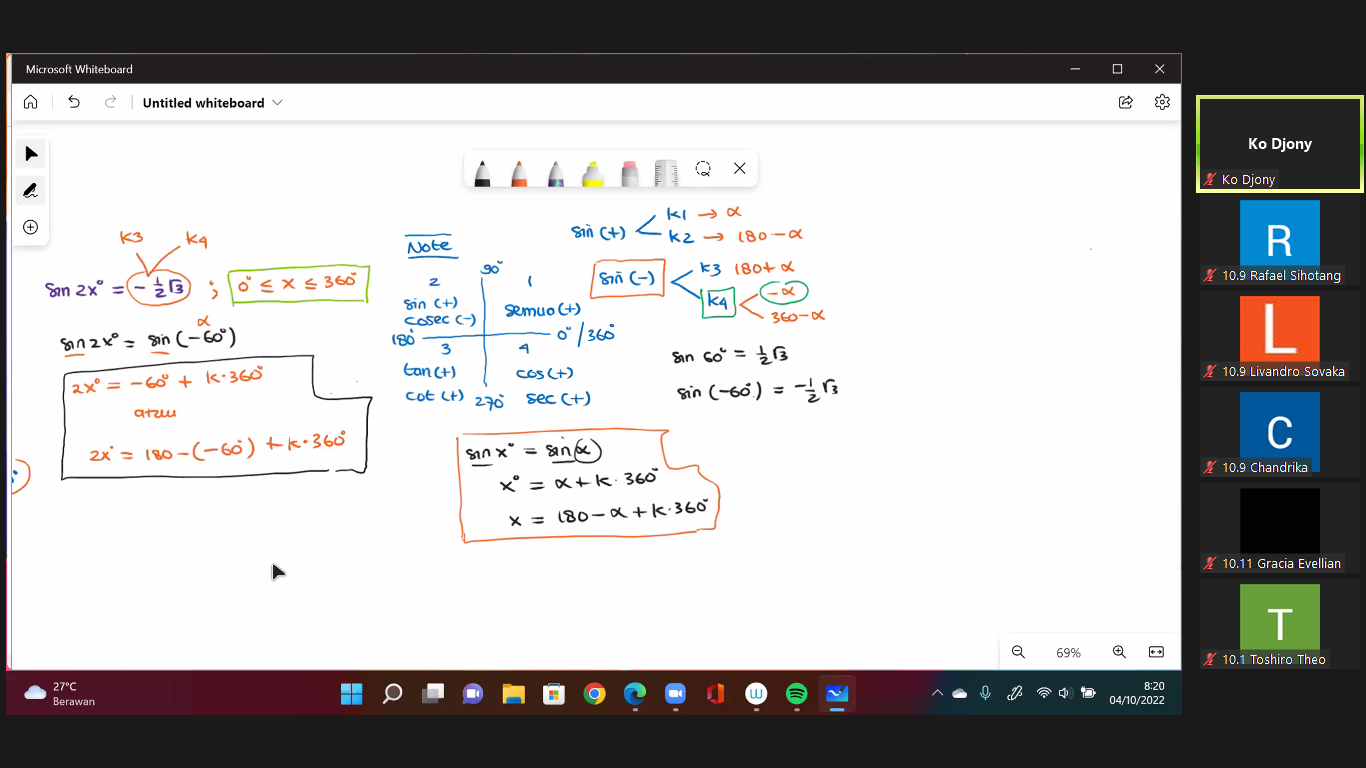 Microsoft Whiteboard
Untitled whiteboard
K3 K4
sin 2x° = -½√3 ; 0° ≤ x ≤ 360°
α
sin 2x° = sin (-60°)
2x° = -60° + k·360°
atau
2x° = 180 - (-60°) + k·360°
Note
90°
2 1
sin (+)
cosec (-)
semua (+)
180° 0° / 360°
3 4
tan (+) cos (+)
cot (+) 270° sec (+)
sin (+)
k1 → α
k2 → 180 - α
sin (-)
k3 180 + α
k4
-α
360 - α
sin 60° = ½√3
sin (-60°) = -½√3
sin x° = sin α
x° = α + k·360°
x = 180 - α + k·360°
69%
27°C
Berawan
8:20
04/10/2022
Ko Djony
Ko Djony
R
10.9 Rafael Sihotang
L
10.9 Livandro Sovaka
C
10.9 Chandrika
10.11 Gracia Evellian
T
10.1 Toshiro Theo